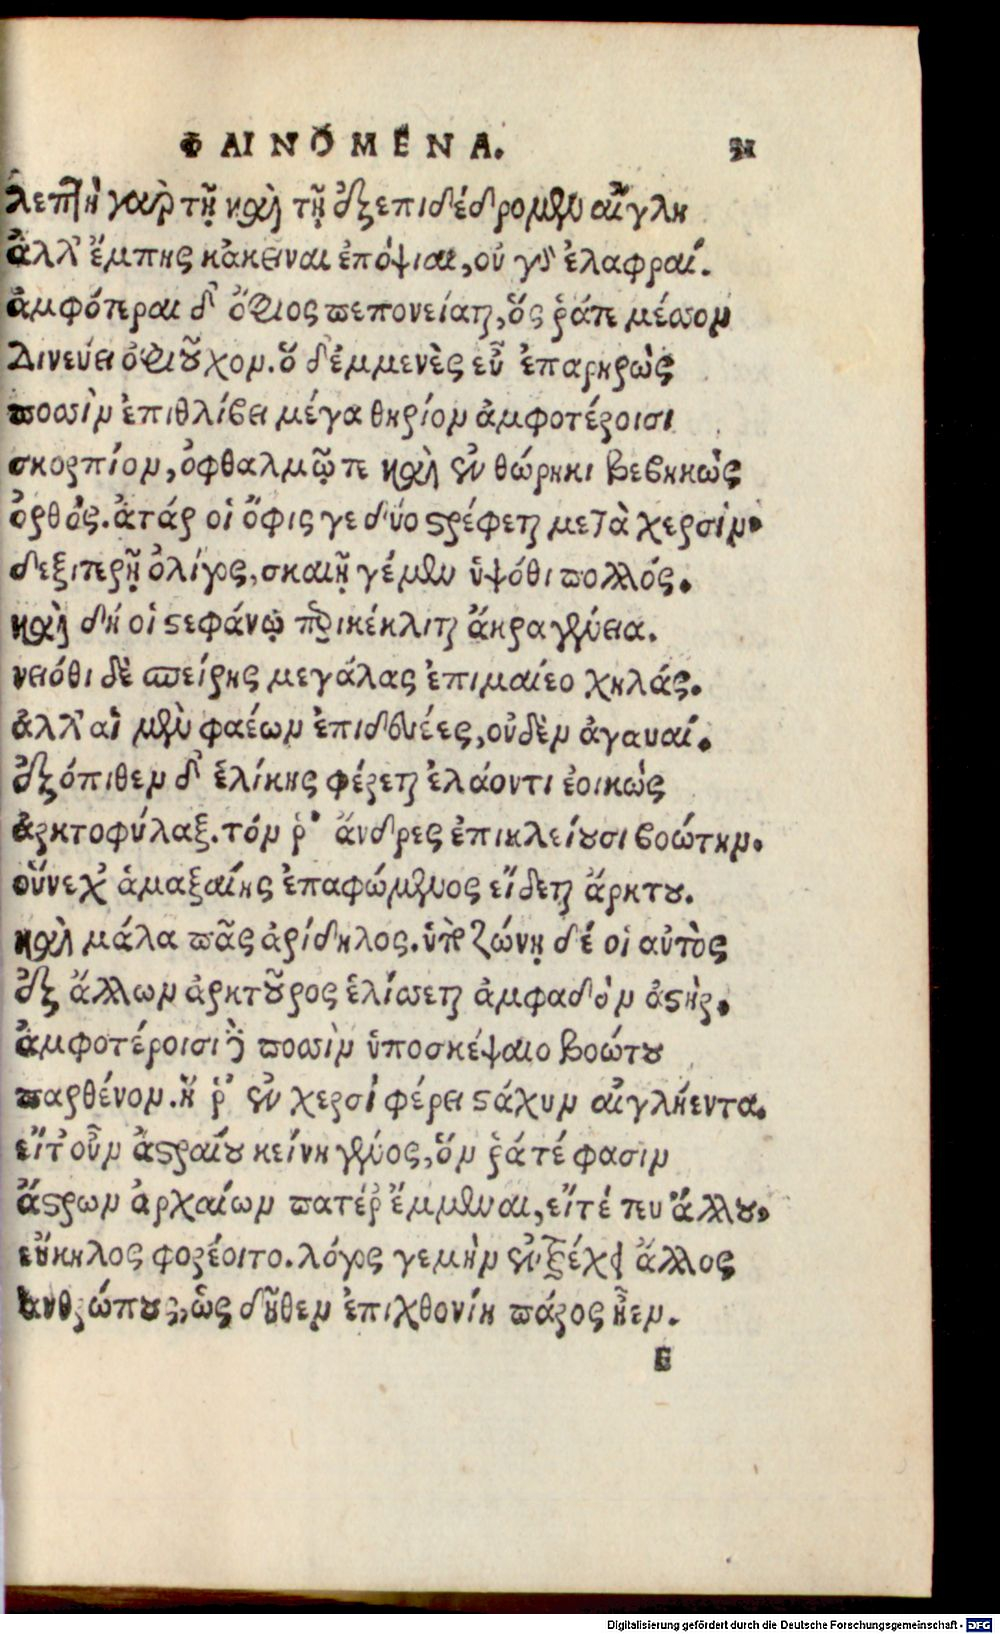 ΦΑΙΝΌΜΕΝΑ.
λεπτὴ γὰρ τῇ καὶ τῇ ἐπιδέδρομεν αἴγλη
ἀλλ' ἔμπης κἀκειναι ἐπόψιαι, οὐ γὰρ ἐλαφραί.
ἀμφότεραι δ' ὄφιος πεπονείαται, ὅς ῥάτε μέσσον
Δινεύει ὀφιοῦχον. ὅ δ' ἐμμενὲς εὖ ἐπαρηρὼς
ποσσὶν ἐπιθλίβει μέγα θηρίον ἀμφοτέροισι
σκορπίον, ὀφθαλμῷ τε καὶ ἐν θώρηκι βεβηκὼς
ὀρθός. ἀτάρ οἱ ὄφις γε δύο στρέφεται μετὰ χερσίν.
δεξιτερῇ ὀλίγος, σκαιῇ γέ μὲν ὑψόθι πολλός.
καὶ δή οἱ στεφάνῳ παρικέκλιται ἄκρα γένεια.
νειόθι δὲ σπείρης μεγάλας ἐπιμαίεο χηλάς.
ἀλλ' αἱ μὲν φαέων ἐπιδευέες, οὐδὲν ἀγαυαί.
ἐξόπιθεν δ' ἑλίκης φέρεται ἐλάοντι ἐοικώς
ἀρκτοφύλαξ. τόν ῥ' ἄνδρες ἐπικλείουσι βοώτην.
οὕνεχ' ἁμαξαίης ἐπαφώμενος εἴδεται ἄρκτου.
καὶ μάλα πᾶς ἀρίδηλος. ὑπὸ ζώνῃ δέ οἱ αὐτὸς
ἐξ ἄλλων ἀρκτοῦρος ἑλίσσεται ἀμφαδὸν ἀστήρ.
ἀμφοτέροισι δὲ ποσσὶν ὑποσκέψαιο βοώτου
παρθένον. ἥ ῥ' ἐν χερσί φέρει στάχυν αἰγλήεντα.
εἴτ' οὖν ἀστραίου κείνη γένος, ὅν ῥά τέ φασιν
ἄστρων ἀρχαίων πατέρ' ἔμμεναι, εἴτέ τευ ἄλλου,
εὔκηλος φορέοιτο. λόγος γεμὴν ἐντρέχει ἄλλος
ἀνθρώπους, ὡς δῆθεν ἐπιχθονίη πάρος ἦεν.
E
Digitalisierung gefördert durch die Deutsche Forschungsgemeinschaft - DFG